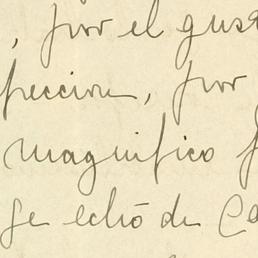 , por el gus
feccion, por
magnifico f
ge echó de Ca